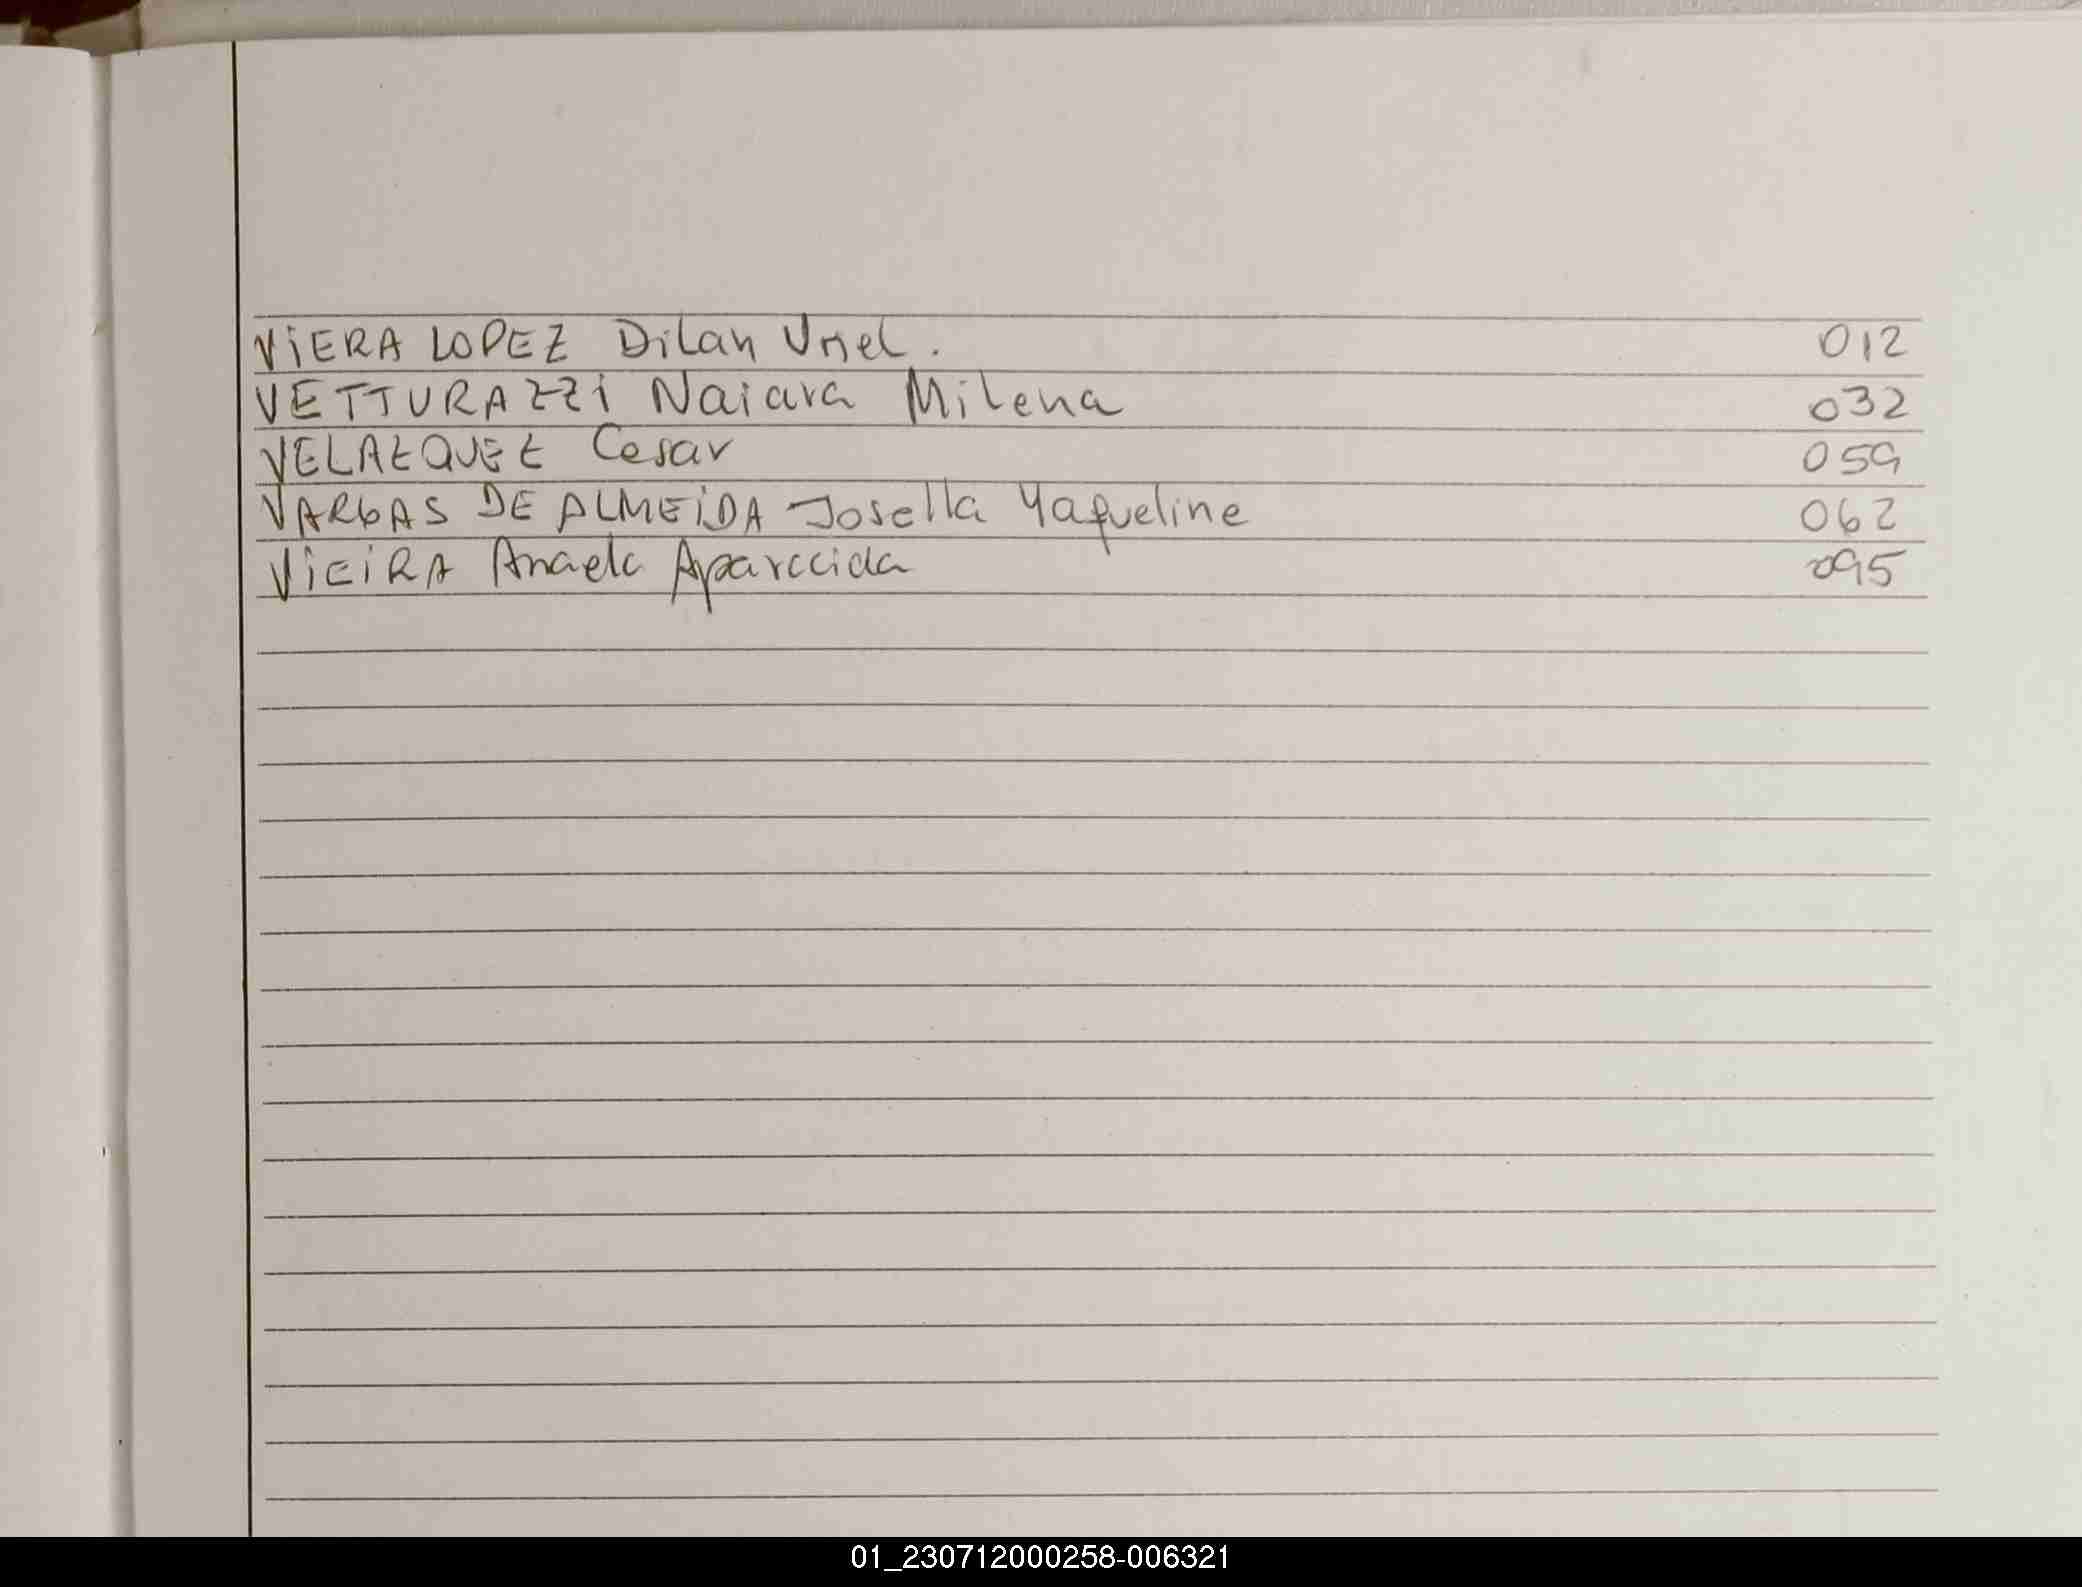 VIERA LOPEZ Dilan Uriel. 012
VETTURAZZI Naiara Milena 032
VELAZQUEZ Cesar 059
VARGAS DE ALMEIDA Josella Yaqueline 062
VIEIRA Aparecida 095
01_230712000258-006321